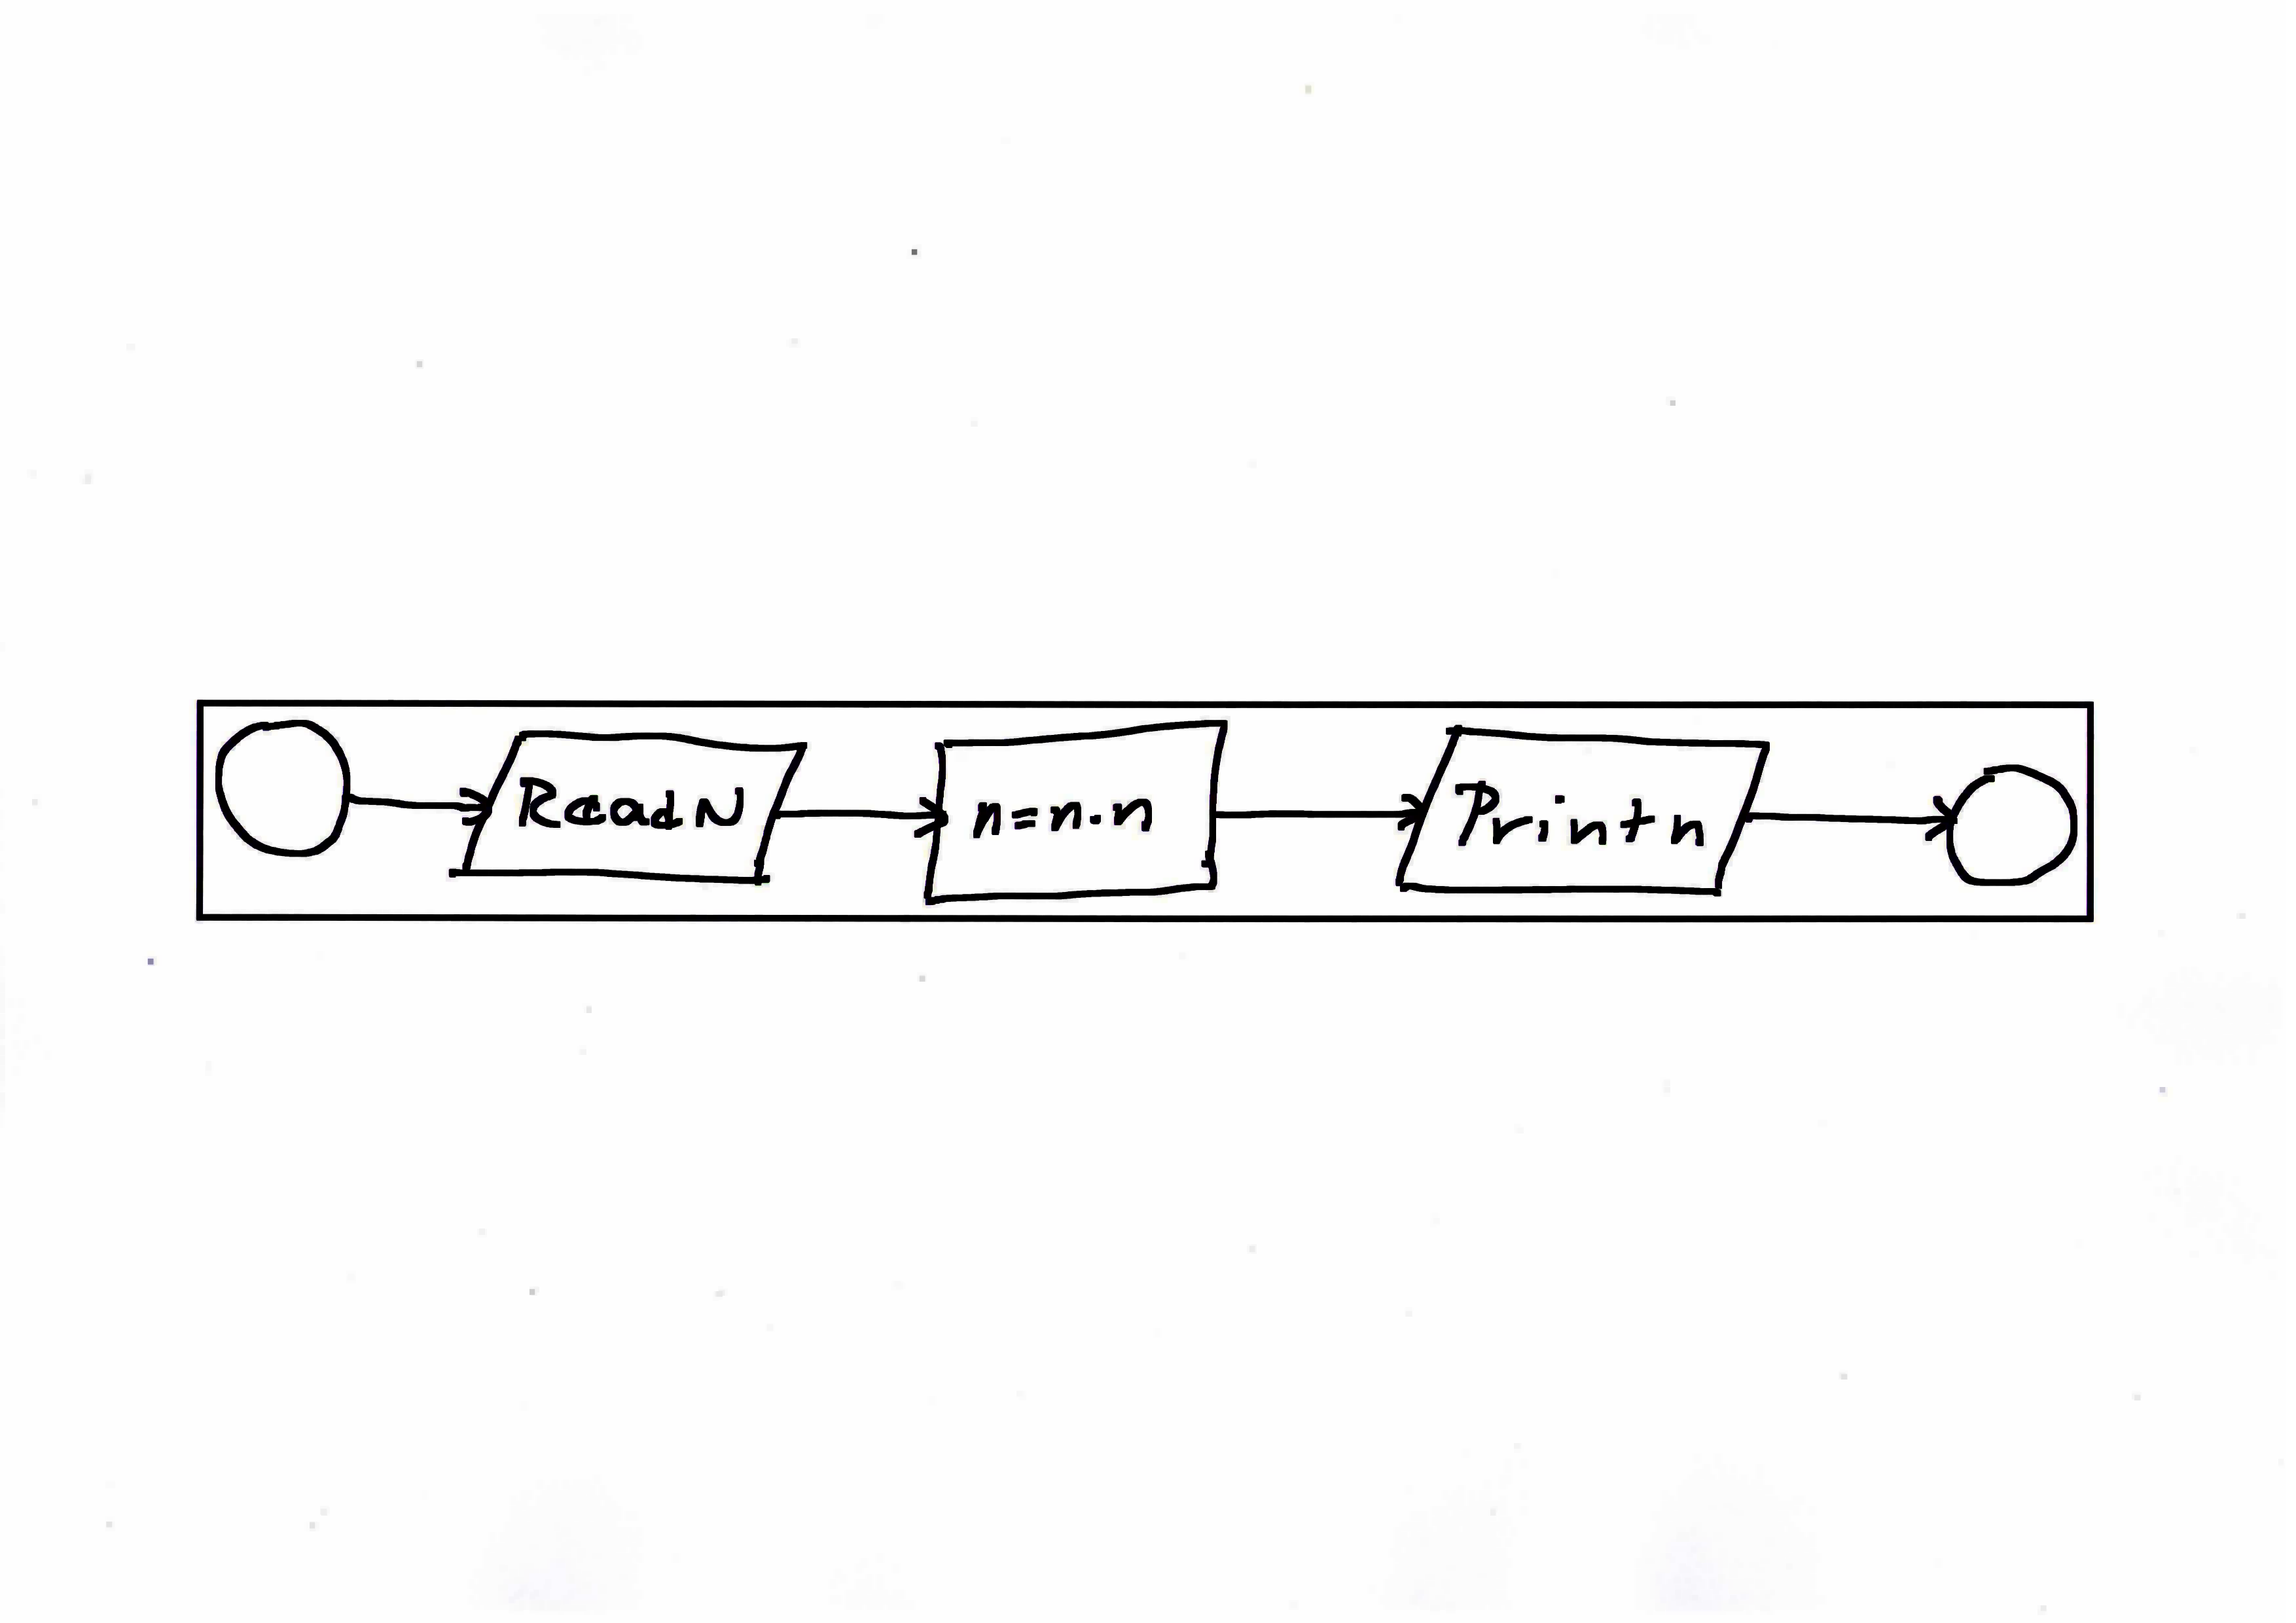 Read N
n=n.n
Print n